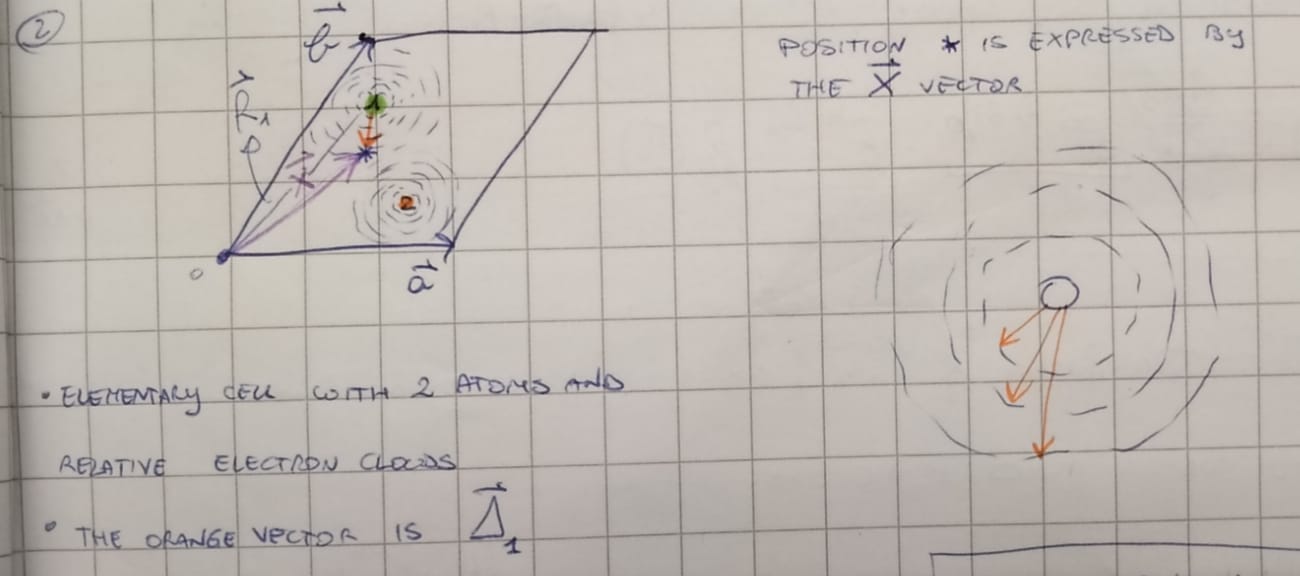 2
b⃗
R⃗₁
1
x⃗
2
0
a⃗
POSITION * IS EXPRESSED BY
THE X⃗ VECTOR
• ELEMENTARY CELL WITH 2 ATOMS AND
RELATIVE ELECTRON CLOUDS
• THE ORANGE VECTOR IS Δ⃗₁